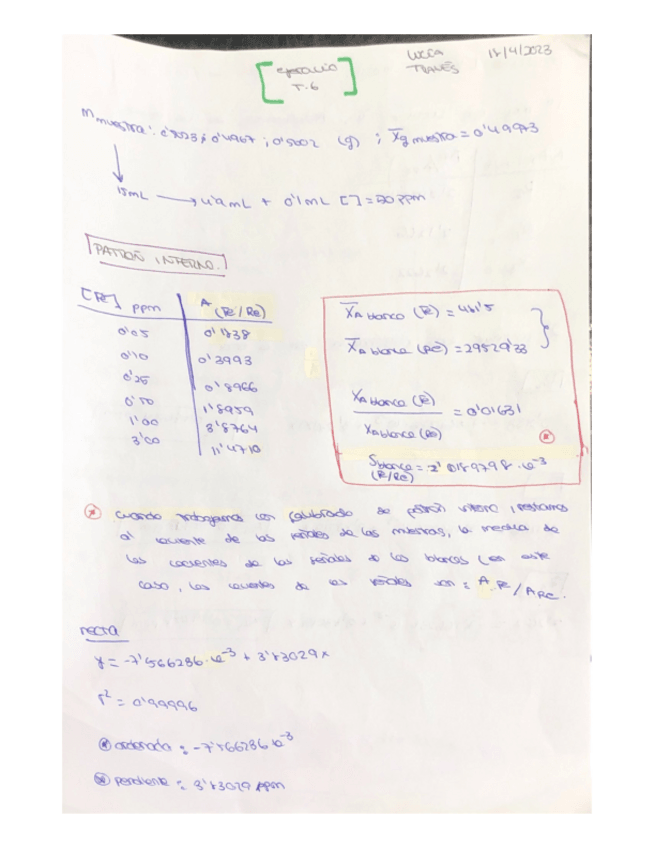 ejercicio LUCCA 18/4/2023
T.6 TRAVÉS
m muestra: 0'5023; 0'4967; 0'5002 (g) ; X̄g muestra = 0'49973
15mL → 4'9mL + 0'1mL [ ] = 50 ppm
PATRÓN INTERNO.
[Pt] ppm A (Pt/Re)
0'05 0'1838
0'10 0'3993
0'25 0'8966
0'50 1'8959
1'00 3'8764
3'00 11'4710
X̄A blanco (Pt) = 461'5
X̄A blanco (Re) = 29529'33
X̄A blanco (Pt) / X̄A blanco (Re) = 0'01631
Sblanco (Pt/Re) = 2'0189798·10⁻³
* cuando trabajamos con calibrado de patrón interno, restamos
al cociente de las señales de las muestras, la media de
los cocientes de las señales de los blancos (en este
caso, los cocientes de las señales son = A Pt / A Re.
recta
y = -7'566286·10⁻³ + 3'83029x
r² = 0'99996
* ordenada = -7'566286·10⁻³
* pendiente = 3'83029 ppm